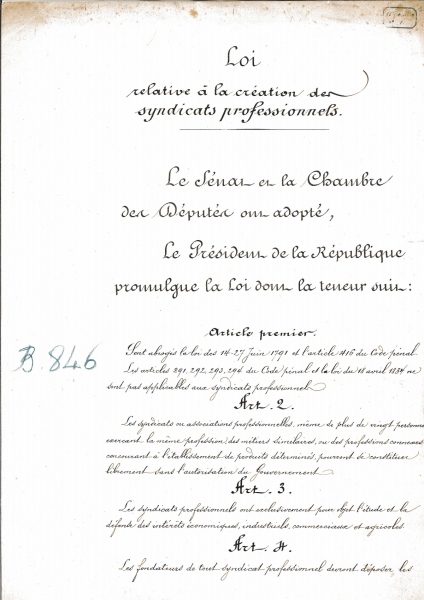 Loi
relative à la création des
syndicats professionnels.
Le Sénat et la Chambre
des Députés ont adopté,
Le Président de la République
promulgue la Loi dont la teneur suit :
Article premier.
B. 846
Sont abrogés la loi des 14-27 Juin 1791 et l'article 416 du Code pénal.
Les articles 291, 292, 293, 294 du Code pénal et la loi du 18 avril 1834 ne
sont pas applicables aux syndicats professionnels
Art. 2.
Les syndicats ou associations professionnelles, même de plus de vingt personnes
exerçant la même profession, des métiers similaires, ou des professions connexes
concourant à l'établissement de produits déterminés, pourront se constituer
librement sans l'autorisation du Gouvernement
Art. 3.
Les syndicats professionnels ont exclusivement pour objet l'étude et la
défense des intérêts économiques, industriels, commerciaux et agricoles
Art. 4.
Les fondateurs de tout syndicat professionnel devront déposer, les